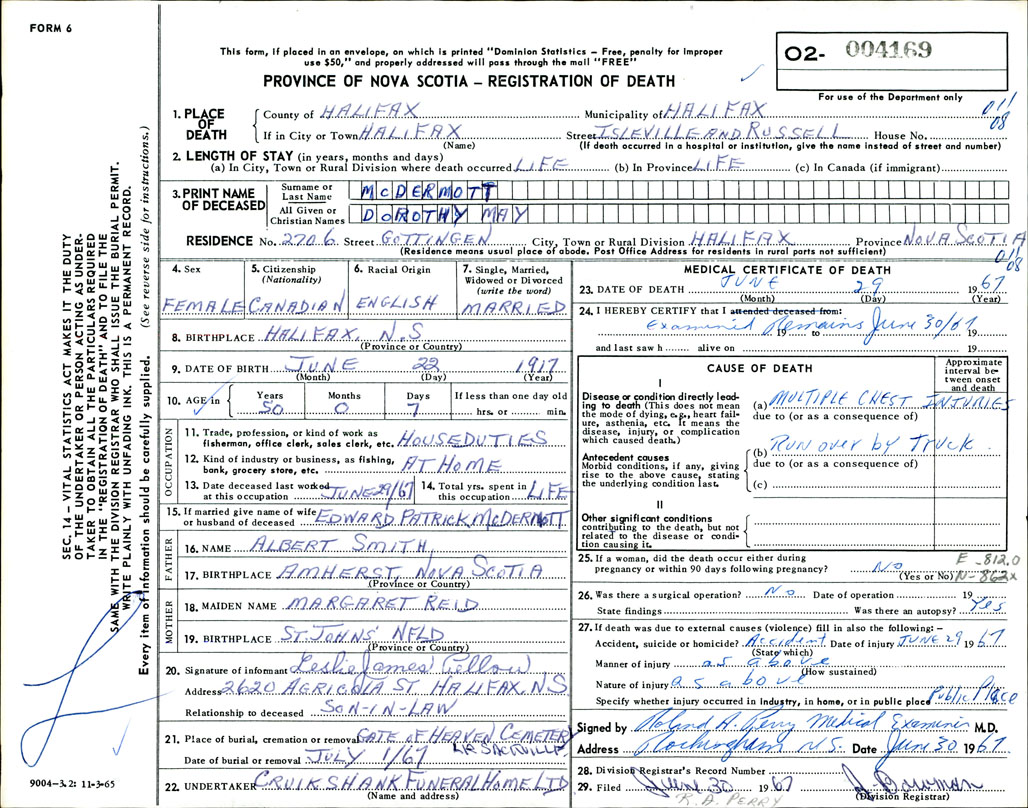 FORM 6
This form, if placed in an envelope, on which is printed "Dominion Statistics – Free, penalty for improper
use $50," and properly addressed will pass through the mail "FREE"
PROVINCE OF NOVA SCOTIA – REGISTRATION OF DEATH
02- 004169
For use of the Department only
1. PLACE OF DEATH
County of HALIFAX Municipality of HALIFAX 011
08
If in City or Town HALIFAX Street ISLEVILLE AND RUSSELL House No.
(Name) (If death occurred in a hospital or institution, give the name instead of street and number)
2. LENGTH OF STAY (in years, months and days)
(a) In City, Town or Rural Division where death occurred LIFE (b) In Province LIFE (c) In Canada (if immigrant)
3. PRINT NAME OF DECEASED
Surname or Last Name McDERMOTT
All Given or Christian Names DOROTHY MAY
RESIDENCE No. 2706 Street GOTTINGEN City, Town or Rural Division HALIFAX Province NOVA SCOTIA
(Residence means usual place of abode. Post Office Address for residents in rural parts not sufficient) 011
08
4. Sex FEMALE
5. Citizenship (Nationality) CANADIAN
6. Racial Origin ENGLISH
7. Single, Married, Widowed or Divorced (write the word) MARRIED
8. BIRTHPLACE HALIFAX, N.S
(Province or Country)
9. DATE OF BIRTH JUNE 22 1917
(Month) (Day) (Year)
10. AGE in Years 50 Months 0 Days 7 If less than one day old hrs. or min.
OCCUPATION
11. Trade, profession, or kind of work as
fisherman, office clerk, sales clerk, etc. HOUSEDUTIES
12. Kind of industry or business, as fishing,
bank, grocery store, etc. AT HOME
13. Date deceased last worked
at this occupation JUNE 29/67
14. Total yrs. spent in
this occupation LIFE
15. If married give name of wife
or husband of deceased EDWARD PATRICK McDERMOTT
FATHER
16. NAME ALBERT SMITH
17. BIRTHPLACE AMHERST, NOVA SCOTIA
(Province or Country)
MOTHER
18. MAIDEN NAME MARGARET REID
19. BIRTHPLACE ST. JOHNS' NFLD
(Province or Country)
20. Signature of informant Leslie James
Address 2620 AGRICOLA ST HALIFAX, NS
Relationship to deceased SON-IN-LAW
21. Place of burial, cremation or removal GATE OF HEAVEN CEMETERY
SACKVILLE
Date of burial or removal JULY 1/67
22. UNDERTAKER CRUIKSHANK FUNERAL HOME LTD
(Name and address)
MEDICAL CERTIFICATE OF DEATH
23. DATE OF DEATH JUNE 29 1967
(Month) (Day) (Year)
24. I HEREBY CERTIFY that I attended deceased from:
Examined Remains June 30/67
19 to 19
and last saw h alive on 19
CAUSE OF DEATH
Approximate interval between onset and death
I
Disease or condition directly leading to death (This does not mean the mode of dying, e.g., heart failure, asthenia, etc. It means the disease, injury, or complication which caused death.)
(a) MULTIPLE CHEST INJURIES
due to (or as a consequence of)
Antecedent causes
Morbid conditions, if any, giving rise to the above cause, stating the underlying condition last.
(b) RUN OVER BY TRUCK
due to (or as a consequence of)
(c)
II
Other significant conditions
contributing to the death, but not related to the disease or condition causing it.
25. If a woman, did the death occur either during
pregnancy or within 90 days following pregnancy? NO
(Yes or No)
E-812.0
N-862X
26. Was there a surgical operation? No Date of operation 19
State findings Was there an autopsy? Yes
27. If death was due to external causes (violence) fill in also the following: –
Accident, suicide or homicide? Accident Date of injury JUNE 29 1967
(State which)
Manner of injury as above
(How sustained)
Nature of injury as above
Specify whether injury occurred in industry, in home, or in public place Public Place
Signed by Roland A. Perry Medical Examiner M.D.
Address Rockingham N.S. Date June 30 1967
28. Division Registrar's Record Number
29. Filed June 30 1967
(Division Registrar)
R.A. PERRY
SEC. 14 – VITAL STATISTICS ACT MAKES IT THE DUTY
OF THE UNDERTAKER OR PERSON ACTING AS UNDER-
TAKER TO OBTAIN ALL THE PARTICULARS REQUIRED
IN THE "REGISTRATION OF DEATH" AND TO FILE THE
SAME WITH THE DIVISION REGISTRAR WHO SHALL ISSUE THE BURIAL PERMIT.
WRITE PLAINLY WITH UNFADING INK. THIS IS A PERMANENT RECORD.
Every item of information should be carefully supplied. (See reverse side for instructions.)
9004-3.2: 11-3-65